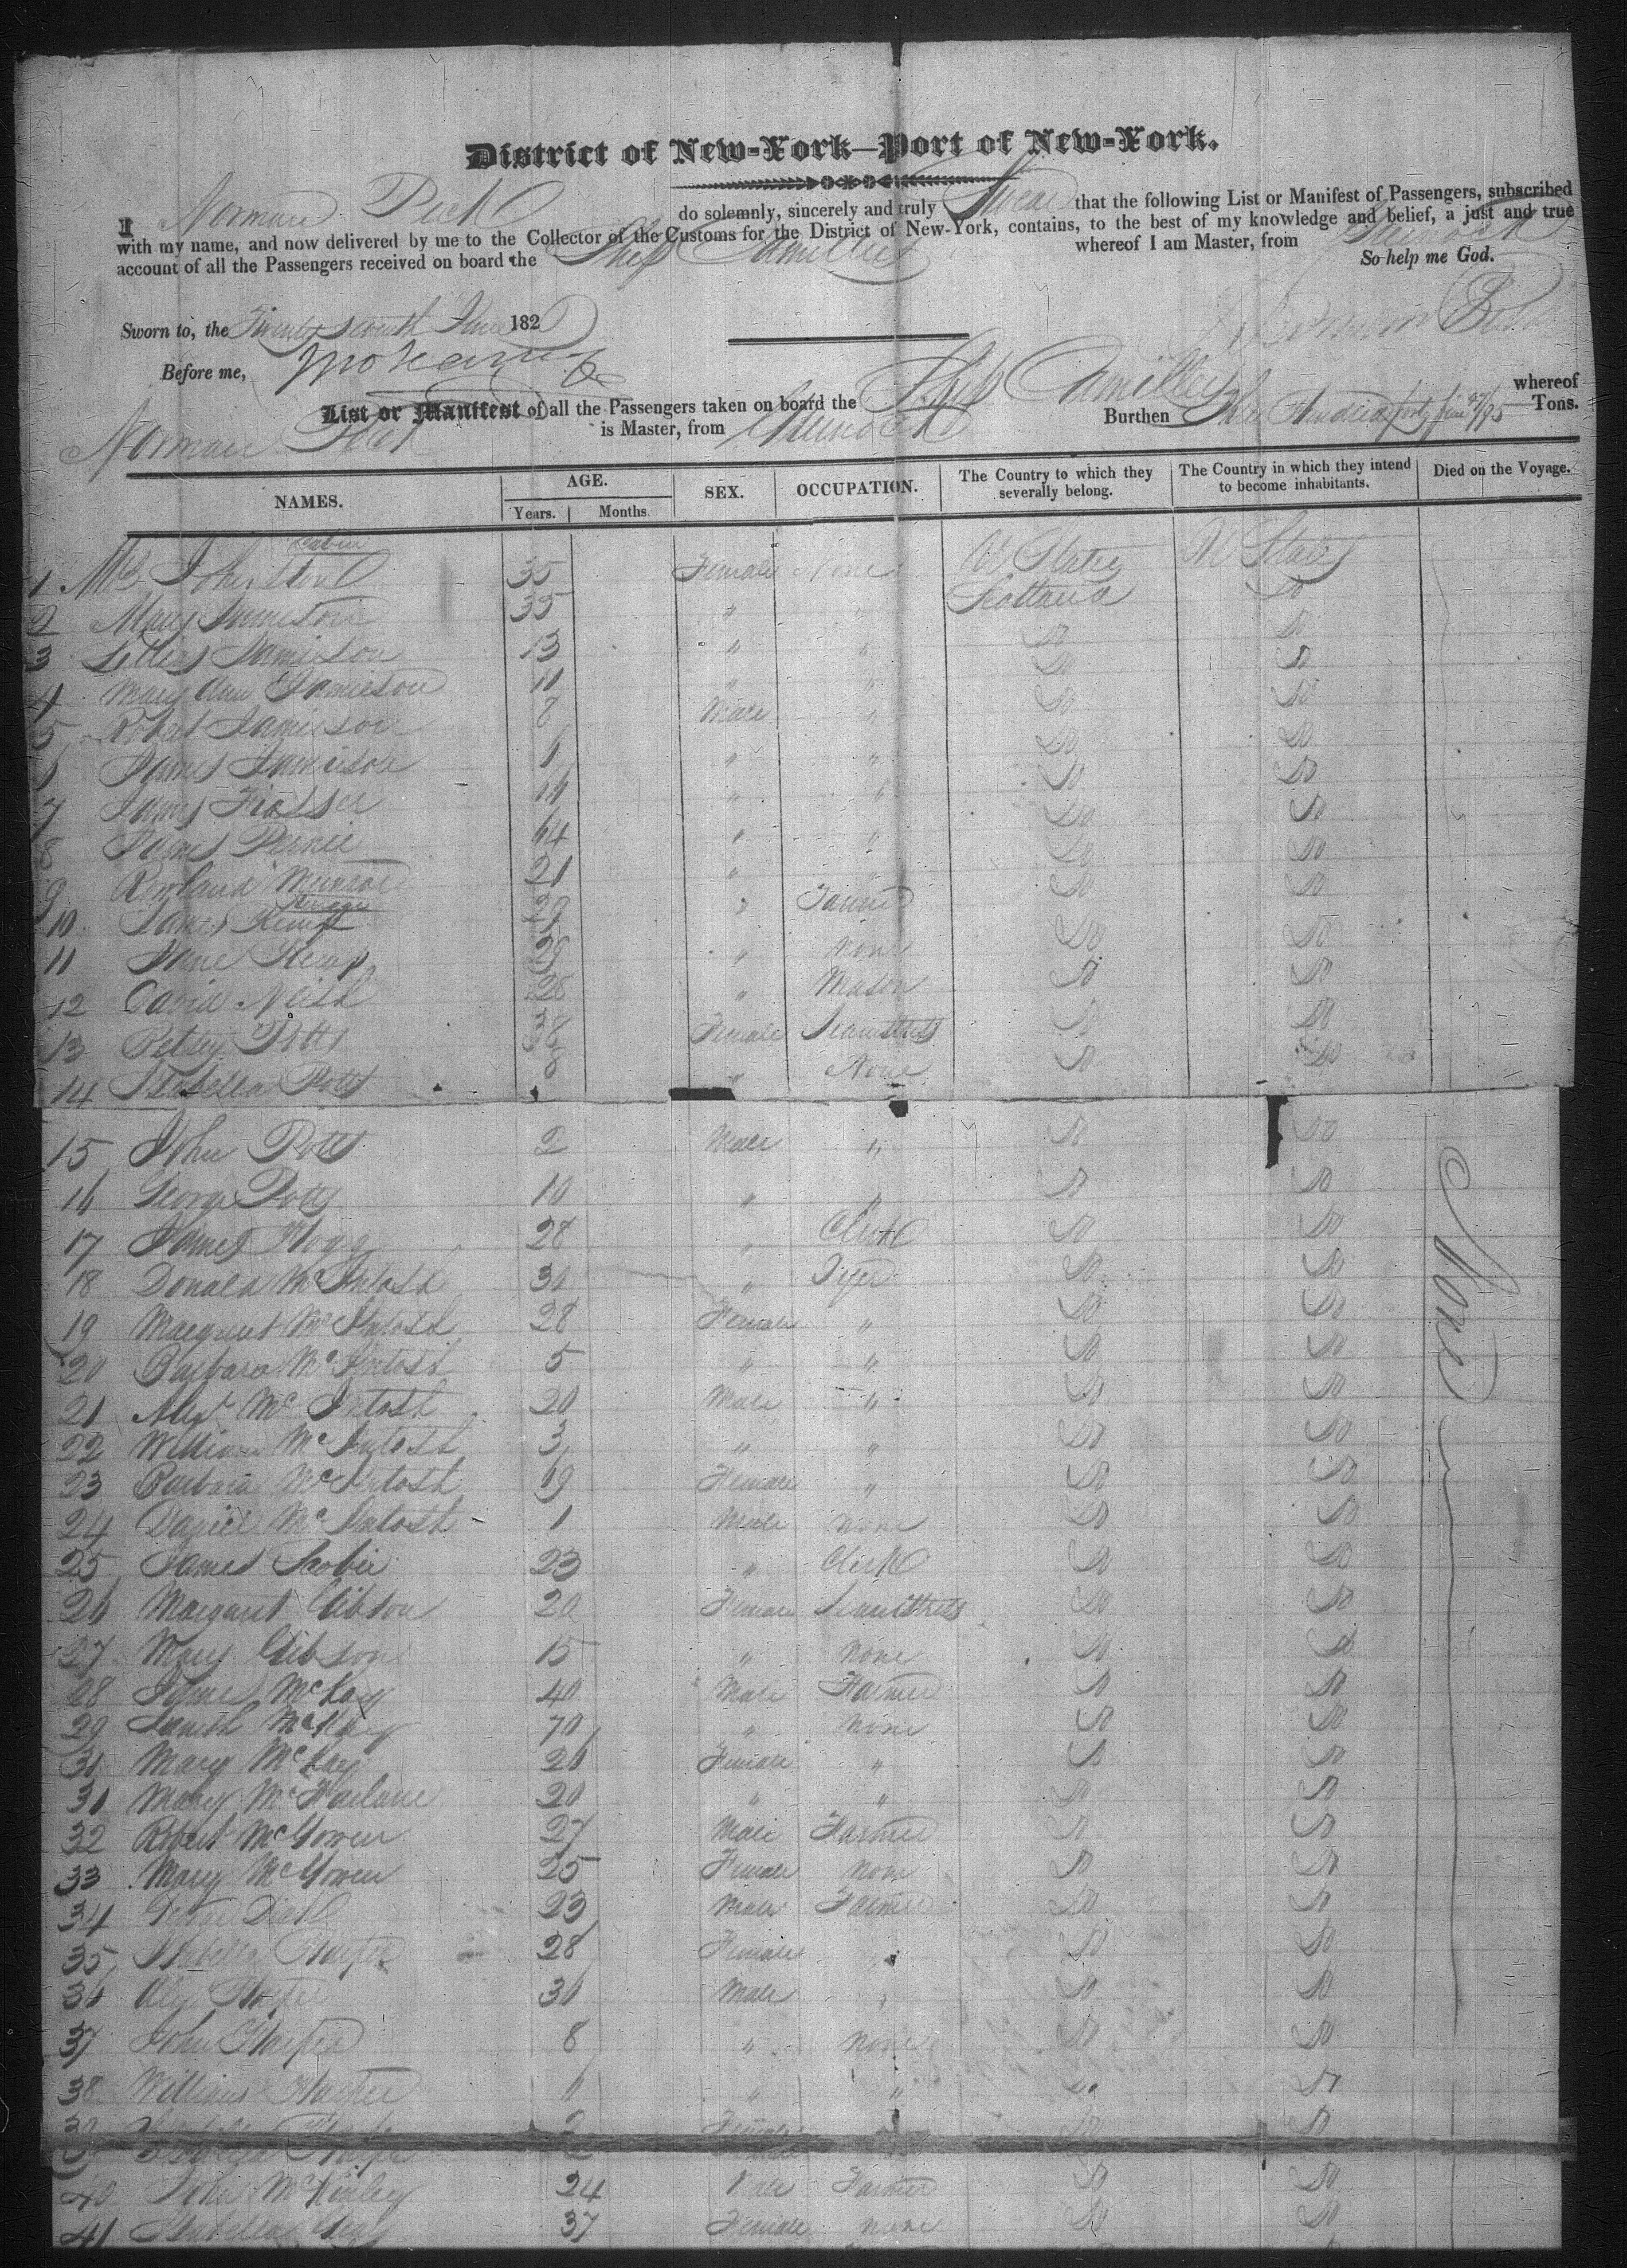 District of New-York—Port of New-York.
I Norman Peck do solemnly, sincerely and truly Swear that the following List or Manifest of Passengers, subscribed
with my name, and now delivered by me to the Collector of the Customs for the District of New-York, contains, to the best of my knowledge and belief, a just and true
account of all the Passengers received on board the Ship Camillus whereof I am Master, from Greenock
So help me God.
Sworn to, the Twenty seventh June 182
Norman Peck
Before me,
List or Manifest of all the Passengers taken on board the Ship Camillus whereof
Norman Peck is Master, from Greenock Burthen Three Hundred forty five /95 Tons.
NAMES. AGE. SEX. OCCUPATION. The Country to which they severally belong. The Country in which they intend to become inhabitants. Died on the Voyage.
Years. Months.
Cabin
1 Mrs 35 Female None U States U States
2 Mary Jamieson 35 " " Scotland Do
3 Jamieson 13 " " Do Do
4 Mary Ann Jamieson 11 " " Do Do
5 Robert Jamieson 8 Male " Do Do
6 James Jamieson " " Do Do
7 James " " Do Do
8 James " " Do Do
9 Rowland Munroe 21 " Do Do
Steerage
10 James Kemp " Farmer Do Do
11 Jane Kemp " none Do Do
12 David 28 " Mason Do Do
13 Betsey Potts Female Seamstress Do Do
14 Isabella Potts 8 " None Do Do
15 John Potts 2 Male " Do Do
16 George Potts 10 " " Do Do
17 James Hogg 28 " Clerk Do Do
18 Donald McIntosh 30 " Do Do
19 Margaret McIntosh 28 Female " Do Do
20 Barbara McIntosh 5 " " Do Do
21 Alexr McIntosh 20 Male " Do Do
22 William McIntosh 3 " " Do Do
23 Barbara McIntosh 19 Female " Do Do
24 Daniel McIntosh 1 Male none Do Do
25 James Scobie 23 " Clerk Do Do
26 Margaret Gibson 20 Female Seamstress Do Do
27 Mary Gibson 15 " none Do Do
28 James McKay 40 Male Farmer Do Do
29 McKay 70 " none Do Do
30 Mary McKay 20 Female " Do Do
31 Mary McFarlane 20 " " Do Do
32 Robert McGowen 27 Male Farmer Do Do
33 Mary McGowen 25 Female none Do Do
34 George Dick 23 Male Farmer Do Do
35 Isabella Harper 28 Female " Do Do
36 Alex Harper 30 Male " Do Do
37 John Harper 8 " none Do Do
38 William Harper " " Do Do
39 Harper 2 Female Do Do
40 John McKinley 24 Male Farmer Do Do
41 Isabella 37 Female none Do Do
None